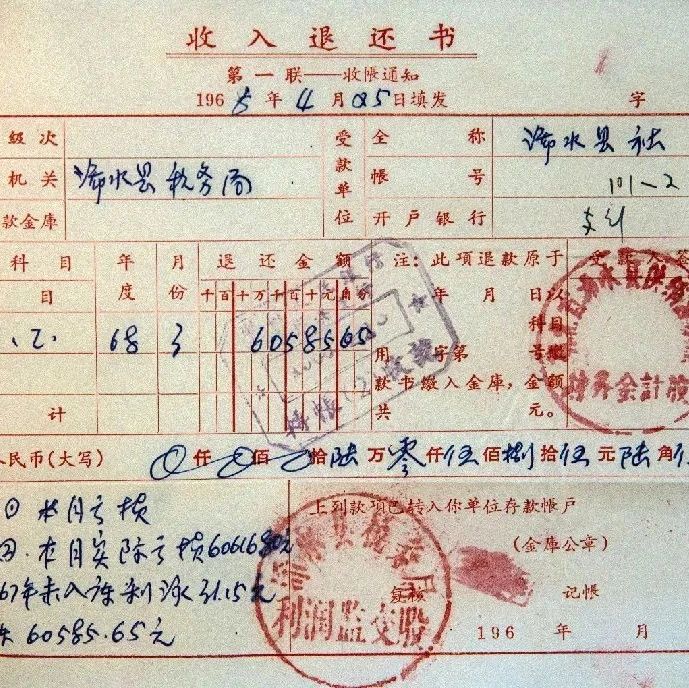 收入退还书
第一联——收帐通知
196 8 年 4 月 25 日填发 字
级次 受款单位 全称 浠水县社
机关 浠水县税务局 帐号 101-2
款金库 开户银行
科目 年度 月份 退还金额 注：此项退款原于
目 千百十万千百十元角分 年 月 日以
68 3 6058565 科目
用 字第 号缴
款书缴入金库，金额
计 共 元。
人民币(大写) 0仟0佰 拾陆万零仟伍佰捌拾伍元陆角
本月亏损 上列款项已转入你单位存款帐户
本月实际亏损60616.80元 (金库公章)
67年未入库利润31.15元 复核 记帐
60585.65元 196 年 月
浠水县税务局
利润监交股
财务会计股